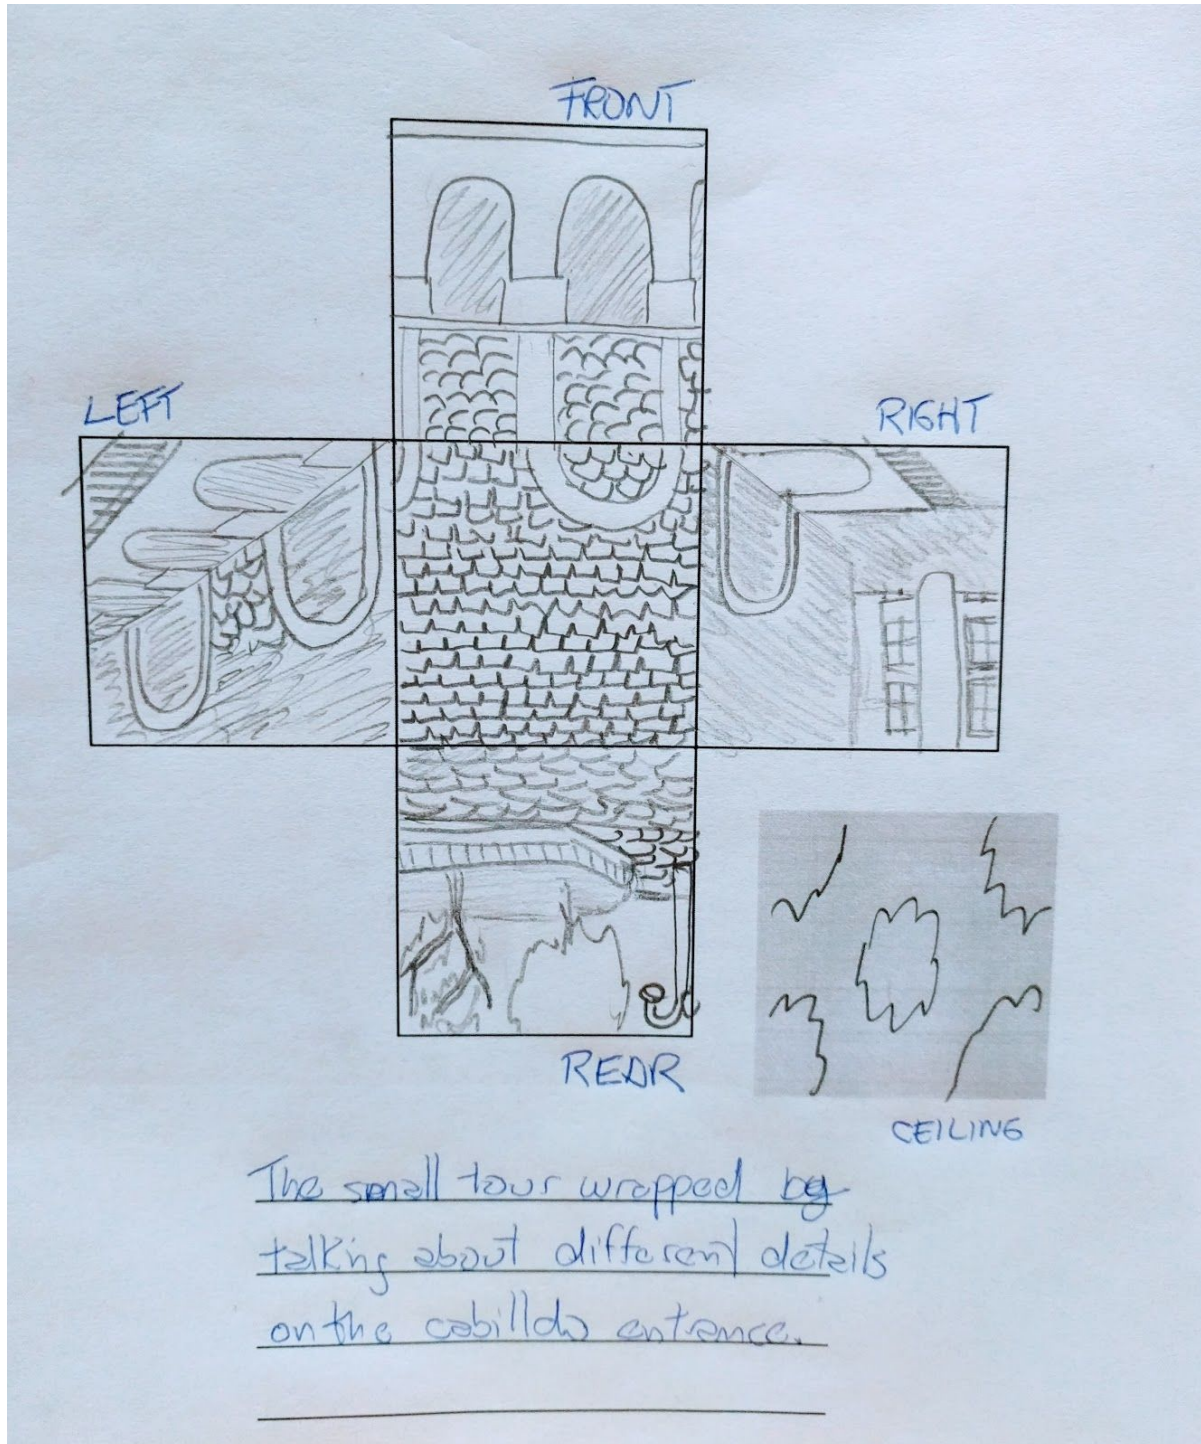 FRONT
LEFT
RIGHT
REAR
CEILING
The small tour wrapped by
talking about different details
on the cabilldo entrance.